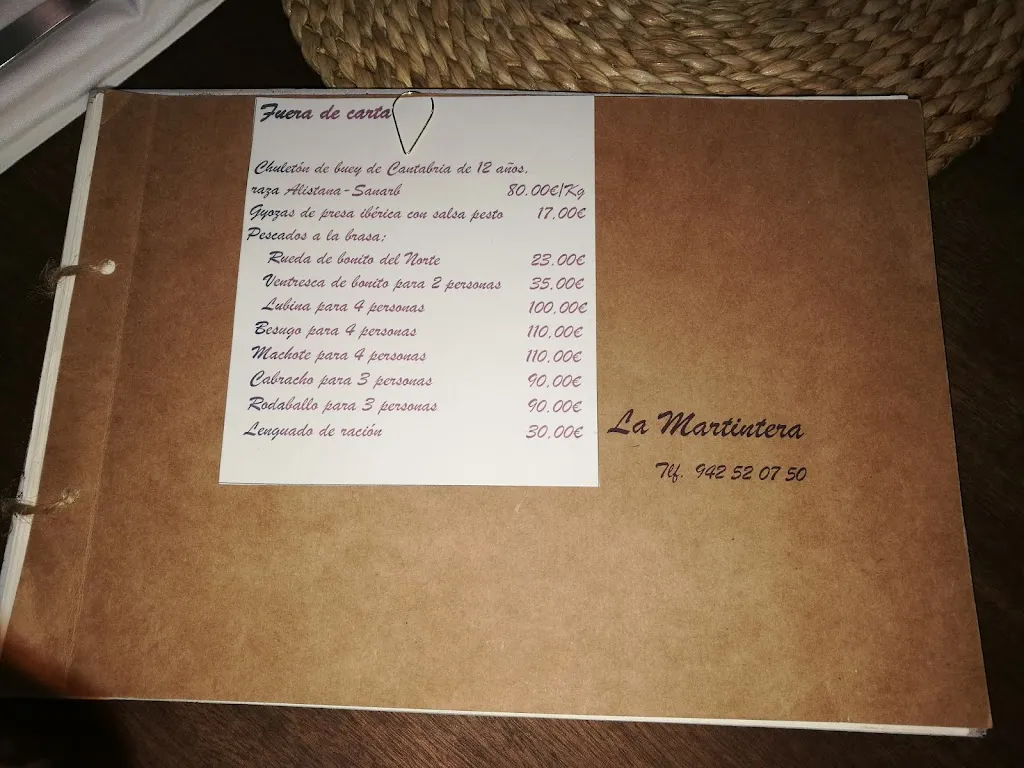 Fuera de carta
Chuletón de buey de Cantabria de 12 años,
raza Alistana-Sanarb 80.00€/Kg
Gyozas de presa ibérica con salsa pesto 17.00€
Pescados a la brasa:
Rueda de bonito del Norte 23.00€
Ventresca de bonito para 2 personas 35.00€
Lubina para 4 personas 100.00€
Besugo para 4 personas 110.00€
Machote para 4 personas 110.00€
Cabracho para 3 personas 90.00€
Rodaballo para 3 personas 90.00€
Lenguado de ración 30.00€
La Martintera
Tlf. 942 52 07 50